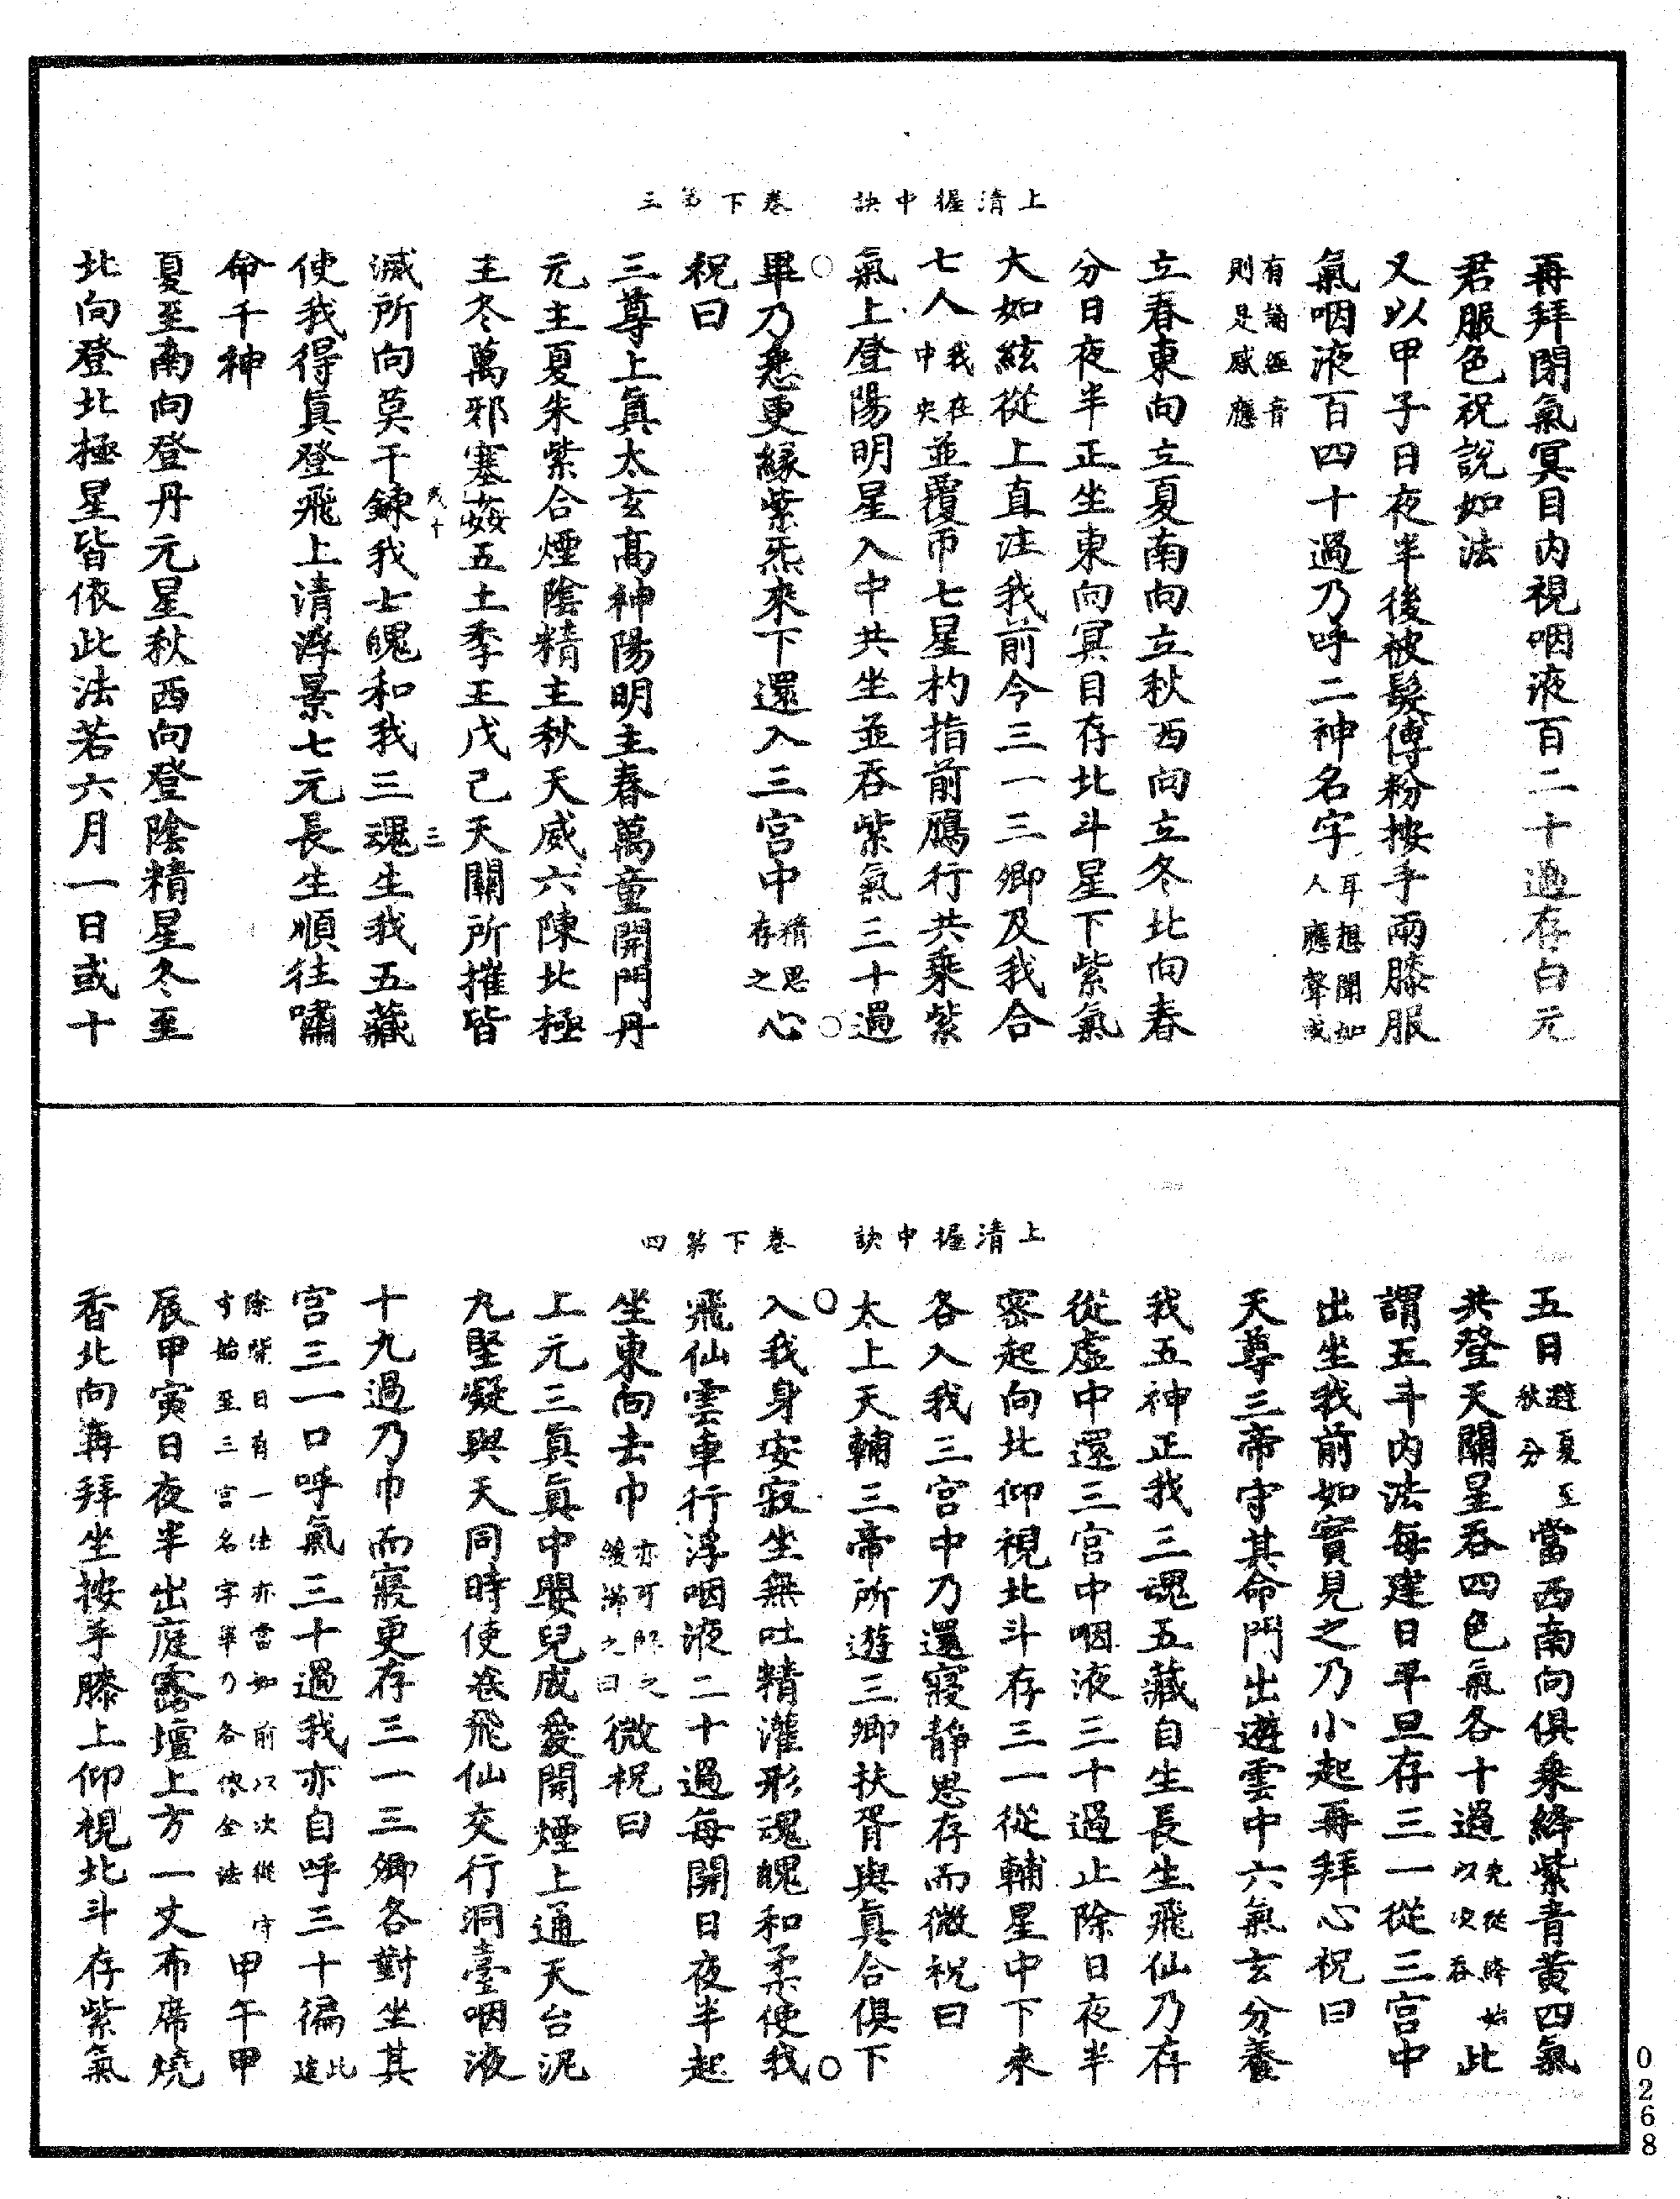 上清握中訣　卷下第三
再拜閉氣冥目内視咽液百二十過存白元
君服色祝說如法
又以甲子日夜半後被髮傅粉按手兩膝服
氣咽液百四十過乃呼二神名字耳想聞如人應聲或
有誦經音則是感應
立春東向立夏南向立秋西向立冬北向春
分日夜半正坐東向冥目存北斗星下紫氣
大如絃從上直注我前今三一三卿及我合
七人我在中央並覆帀七星杓指前鴈行共乘紫
氣上登陽明星入中共坐並吞紫氣三十過
畢乃悉更緣紫炁來下還入三宮中精思存之心
祝曰
三尊上眞太玄高神陽明主春萬童開門丹
元主夏朱紫合煙陰精主秋天威六陳北極
主冬萬邪塞姦五土季王戊己天關所摧皆
滅所向莫干鍊我七魄和我三魂生我五藏
三
使我得眞登飛上清浮景七元長生順往嘯
命千神
夏至南向登丹元星秋西向登陰精星冬至
北向登北極星皆依此法若六月一日或十
上清握中訣　卷下第四
五日避夏至秋分當西南向俱乘絳紫青黃四氣
共登天關星吞四色氣各十過先從絳始以次吞此
謂五斗内法每建日平旦存三一從三宮中
出坐我前如實見之乃小起再拜心祝曰
天尊三帝守其命門出遊雲中六氣玄分養
我五神正我三魂五藏自生長生飛仙乃存
從虛中還三宮中咽液三十過止除日夜半
密起向北仰視北斗存三一從輔星中下來
各入我三宮中乃還寢靜思存而微祝曰
太上天輔三帝所遊三卿扶胥與眞合俱下
入我身安寂坐無吐精灌形魂魄和柔使我
飛仙雲車行浮咽液二十過每開日夜半起
坐東向去巾亦可解之後滯之曰微祝曰
上元三眞眞中嬰兒成愛開煙上通天台泥
九堅凝與天同時使卷飛仙交行洞臺咽液
十九過乃巾而寢更存三一三卿各對坐其
宮三一口呼氣三十過我亦自呼三十徧此建
除開日有一法亦當如前以次從守寸始至三宮名字單乃各依全法甲午甲
辰甲寅日夜半出庭露壇上方一丈布席燒
香北向再拜坐按手膝上仰視北斗存紫氣
0268